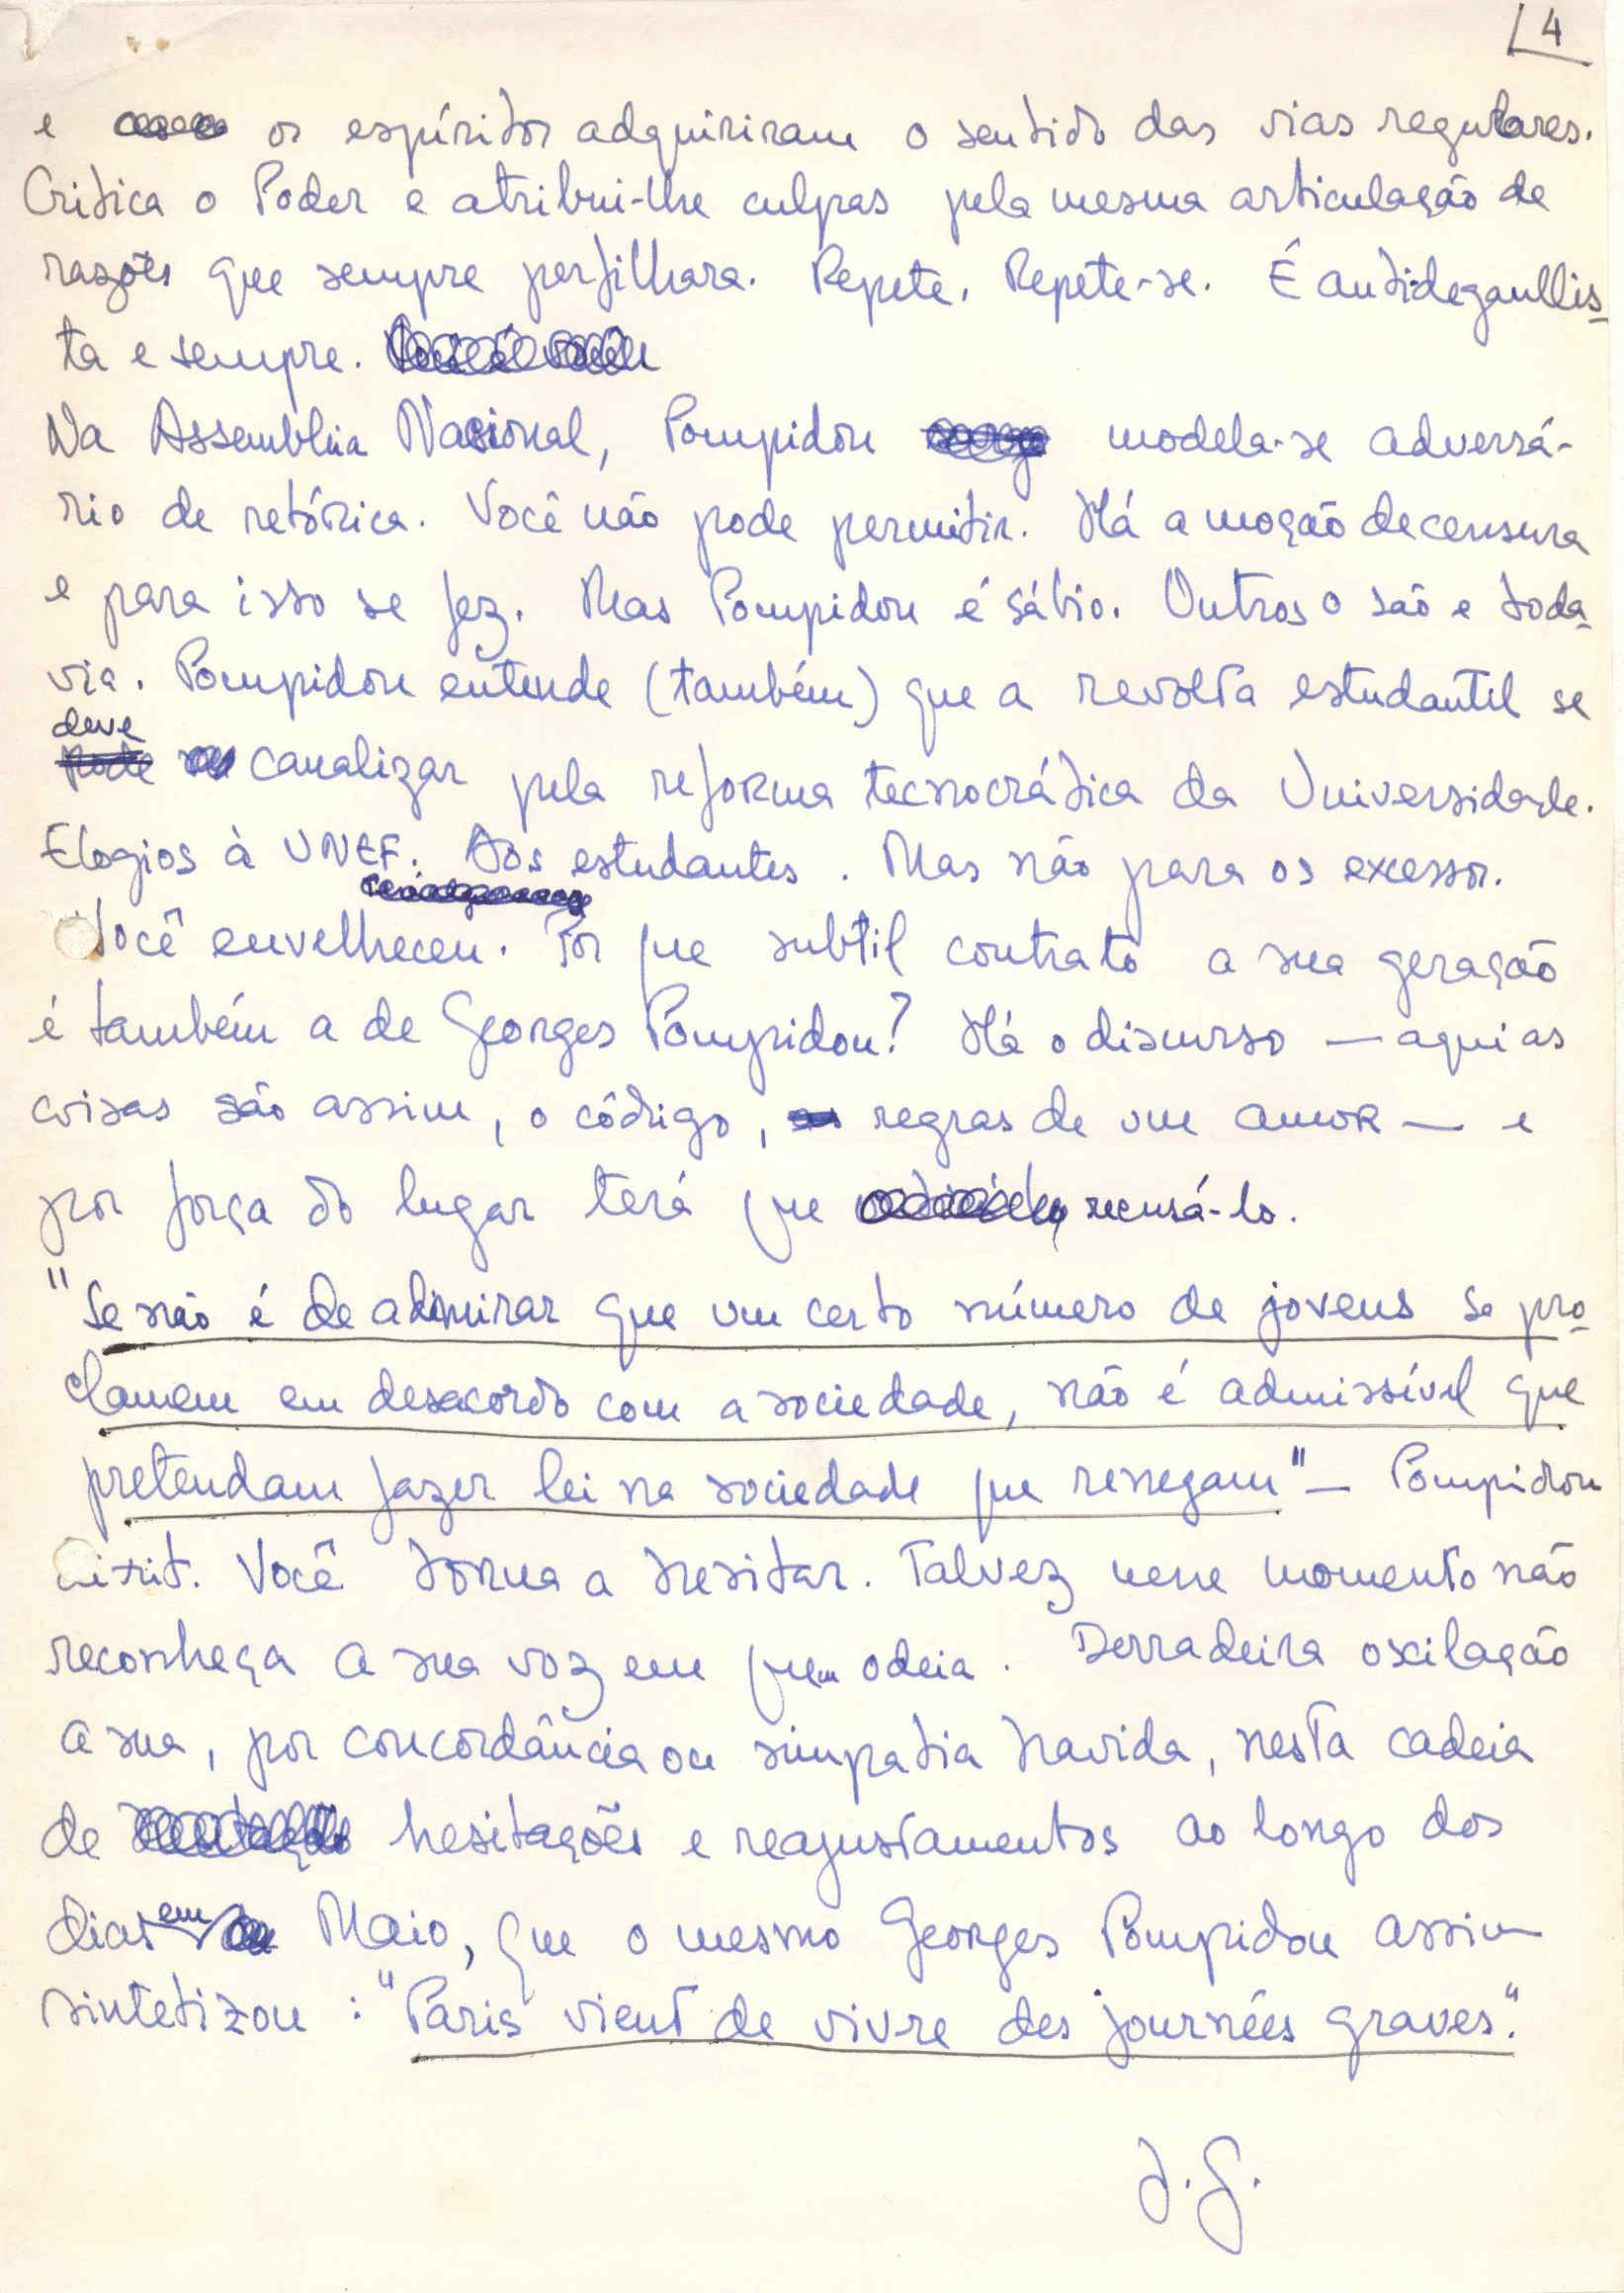 4
e os espíritos adquiriram o sentido das vias regulares.
Critica o Poder e atribui-lhe culpas pela mesma articulação de
razões que sempre perfilhara. Repete. Repete-se. É antidegaullis-
ta e sempre.
Na Assembleia Nacional, Pompidou modela-se adversá-
rio de retórica. Você não pode permitir. Há a moção de censura
e para isso se fez. Mas Pompidou é sábio. Outros o são e toda-
via. Pompidou entende (também) que a revolta estudantil se
deve
pode canalizar pela reforma tecnocrática da Universidade.
Elogios à UNEF. Aos estudantes. Mas não para os excessos.
Você envelheceu. Por que subtil contrato a sua geração
é também a de Georges Pompidou? Há o discurso — aqui as
coisas são assim, o código, as regras de um amor — e
por força do lugar terá que recusá-lo.
"Se não é de admirar que um certo número de jovens se pro-
clamem em desacordo com a sociedade, não é admissível que
pretendam fazer lei na sociedade que renegam" — Pompidou
dixit. Você torna a hesitar. Talvez nesse momento não
reconheça a sua voz em quem odeia. Derradeira oscilação
a sua, por concordância ou simpatia havida, nesta cadeia
de hesitações e reajustamentos ao longo dos
dias em Maio, que o mesmo Georges Pompidou assim
sintetizou: "Paris vient de vivre des journées graves."
J.G.